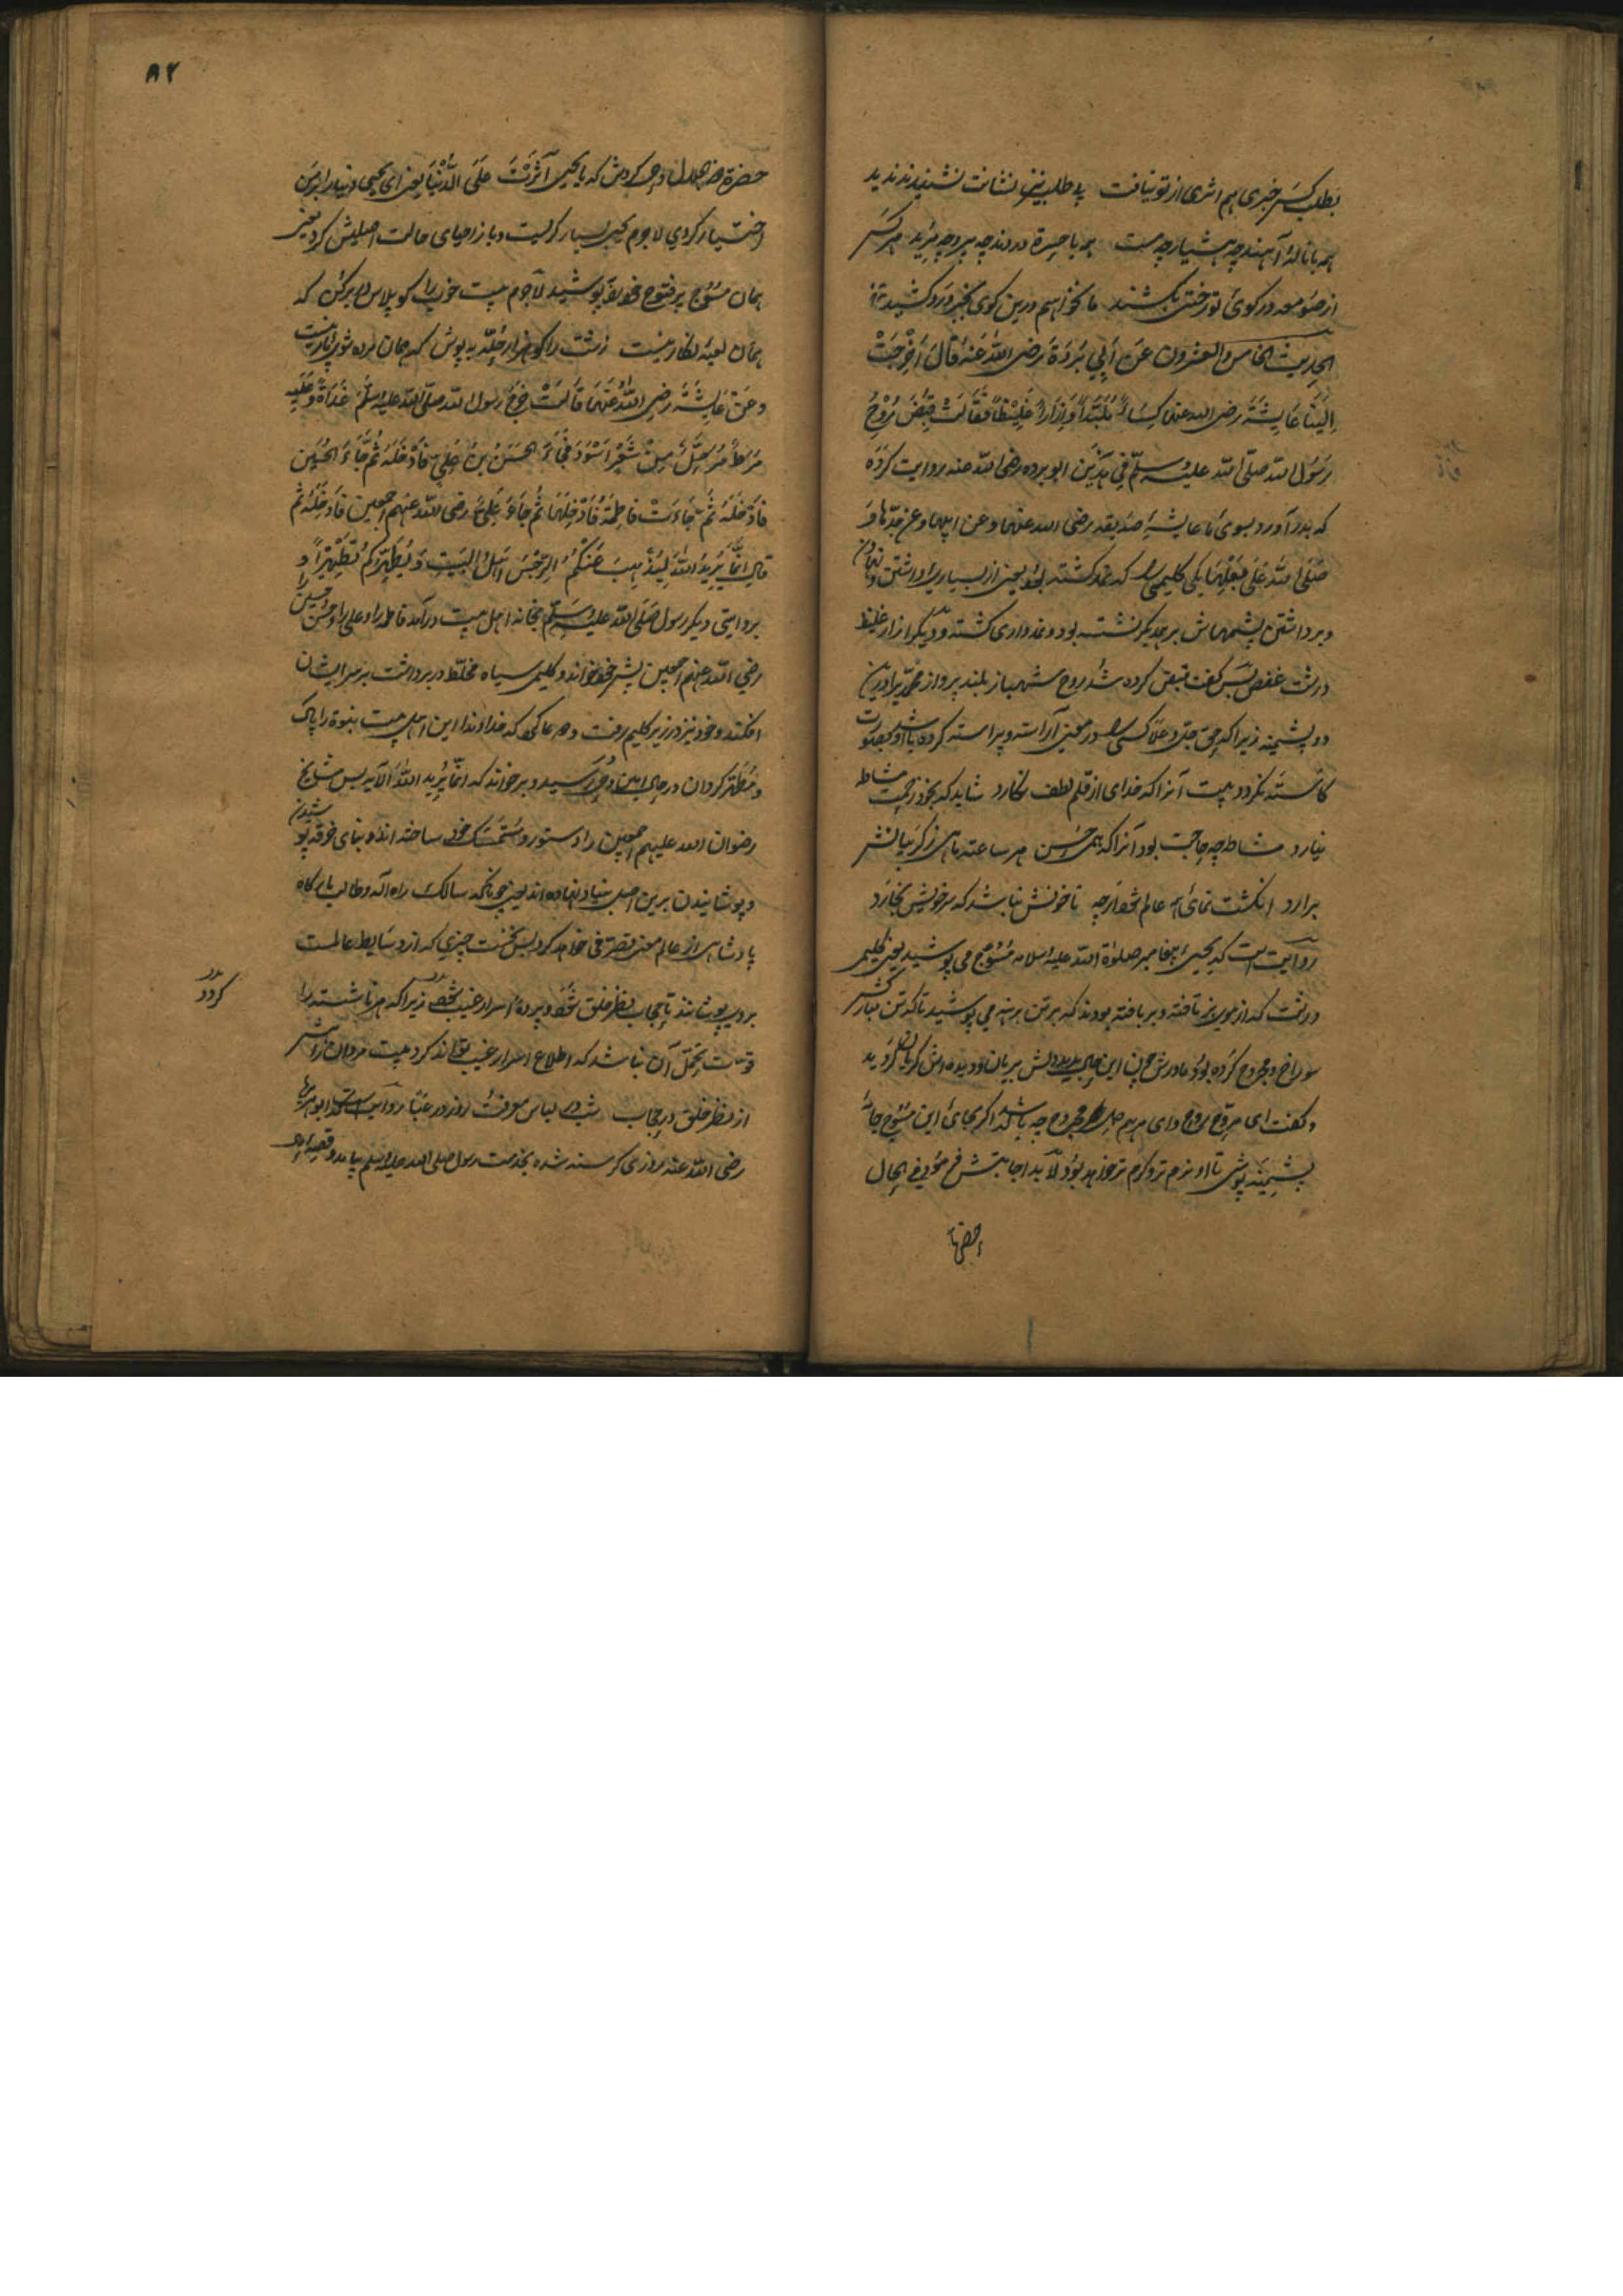 بطلب کس خبری هم اثری از تو نیافت بی طلب نیز نشانت نشنیدند ندید
همه با نالهٔ آهند چه هشیار چه مست همه با حیرة دردند چه پیر و چه مرید هر کس
از صومعه در کوی تو رختی بکشند ما نخواهیم درین کوی بجز درد کشید
الحدیث الخامس والعشرون عن أبي بردة رضی الله عنه قال أخرجت
إلینا عایشة رضی الله عنها کساءً ملبّداً وإزاراً غلیظاً فقالت قبض روح
رسول الله صلی الله علیه وسلم في هذین ابو برده رضی الله عنه روایت کرده
که بدر آورد بسوی ما عایشهٔ صدیقه رضی الله عنها وعن ابیها وعن جدها و
صلی الله علی بعلها یکی کلیمی که نمد کشته بود یعنی از بسیاری داشتن و
و برداشتن پشمهاش بر یکدیگر نشسته بود و نمدواری کشته و دیگر ازار غلیظ
درشت پس کفت قبض کرده شد روح شهباز بلند پرواز محمدی را درین
دو پشمینه زیرا که حق جل وعلا کسی را که در معنی آراسته و پیراسته کرده باشد او بصورت
کاسته نگردد بیت آنرا که خدای از قلم لطف نگارد شاید که بخود زحمت مشاطه
نیارد مشاطه چه حاجت بود آنرا که همی حسن هر ساعته ماهی ز گریبانش
برارد انگشت نمای همه عالم شود ار چه تا خونش نباشد که سر خویش بخارد
روایت است که یحیی پیغامبر صلوة الله علیه و سلامه مسوح می پوشید یعنی کلیمی
درشت که از موی بز تافته و بر بافته بودند که بر تن برهنه می پوشید تا که تن مبارکش
سوراخ و مجروح کرده بود مادرش چون این حال بدید دلش بریان و دیده اش گریان گردید
و کفت ای مروح روح و ای مرهم دل مجروح چه باشد که اگر بجای این مسوح جامهٔ
پشمینه پوشی تا او نرم تر و گرم تر خواهد بود لا بد اجابتش فرمود فی الحال
حضرة
۸۲
حضرة جل جلاله وحی کردش که یا یحیی آثرت علی الدنیا یعنی ای یحیی دنیا را بر من
اختیار کردی لا جرم یحیی بسیار گریست و باز احیای حالت اصلیش کرد یعنی
همان مسوح پر فتوح پوشید لا جرم بیت خوب را کو پلاس در بر کن که
همان لعبة نکارینست زشت را کو هزار حلّه بپوش که همان مرده شوی پارینست
وعن عایشة رضی الله عنها قالت خرج رسول الله صلی الله علیه وسلم غداة وعلیه
مرط مرحّل من شعر أسود فجاء الحسن بن علی فأدخله ثم جاء الحسین
فأدخله ثم جاءت فاطمة فأدخلها ثم جاء علی رضی الله عنهم اجمعین فأدخله ثم
قال انما یرید الله لیذهب عنکم الرجس اهل البیت ویطهرکم تطهیرا و
بروایتی دیگر رسول صلی الله علیه وسلم بخانه اهل بیت درآمد فاطمه را و علی را و حسن و حسین را
رضی الله عنهم اجمعین پیش خود خواند و کلیمی سیاه مخطط در برداشت بر سر ایشان
افکند و خود نیز در زیر کلیم رفت و دعا کرد که خداوندا این اهل بیت نبوة را پاک
و مطهر گردان در حال امین وحی رسید و بر خواند که انما یرید الله الآیه پس مشایخ
رضوان الله علیهم اجمعین را دستور و متمسک خود ساخته اند و بنای خرقه پوشیدن
و پوشانیدن برین اصل بنیاد نهاده اند یعنی چونانکه سالک راه اله و طالب بارگاه
پادشاهی از عالم معنی تصرفی خواهد کرد پس نخست چیزی که از وسایط عالمست
بر وی پوشانند تا حجاب نظر خلق شود و پردهٔ اسرار غیب شود زیرا که هر ناشسته را
گردد
قوت تحمل آن نباشد که اطلاع اسرار غیب تواند کرد بیت مردان
از نظر خلق در حجاب شب در لباس معرفت روز در عبا روایت است که ابو هریره
رضی الله عنه روزی گرسنه شده بخدمت رسول صلی الله علیه وسلم بیامد و قصه